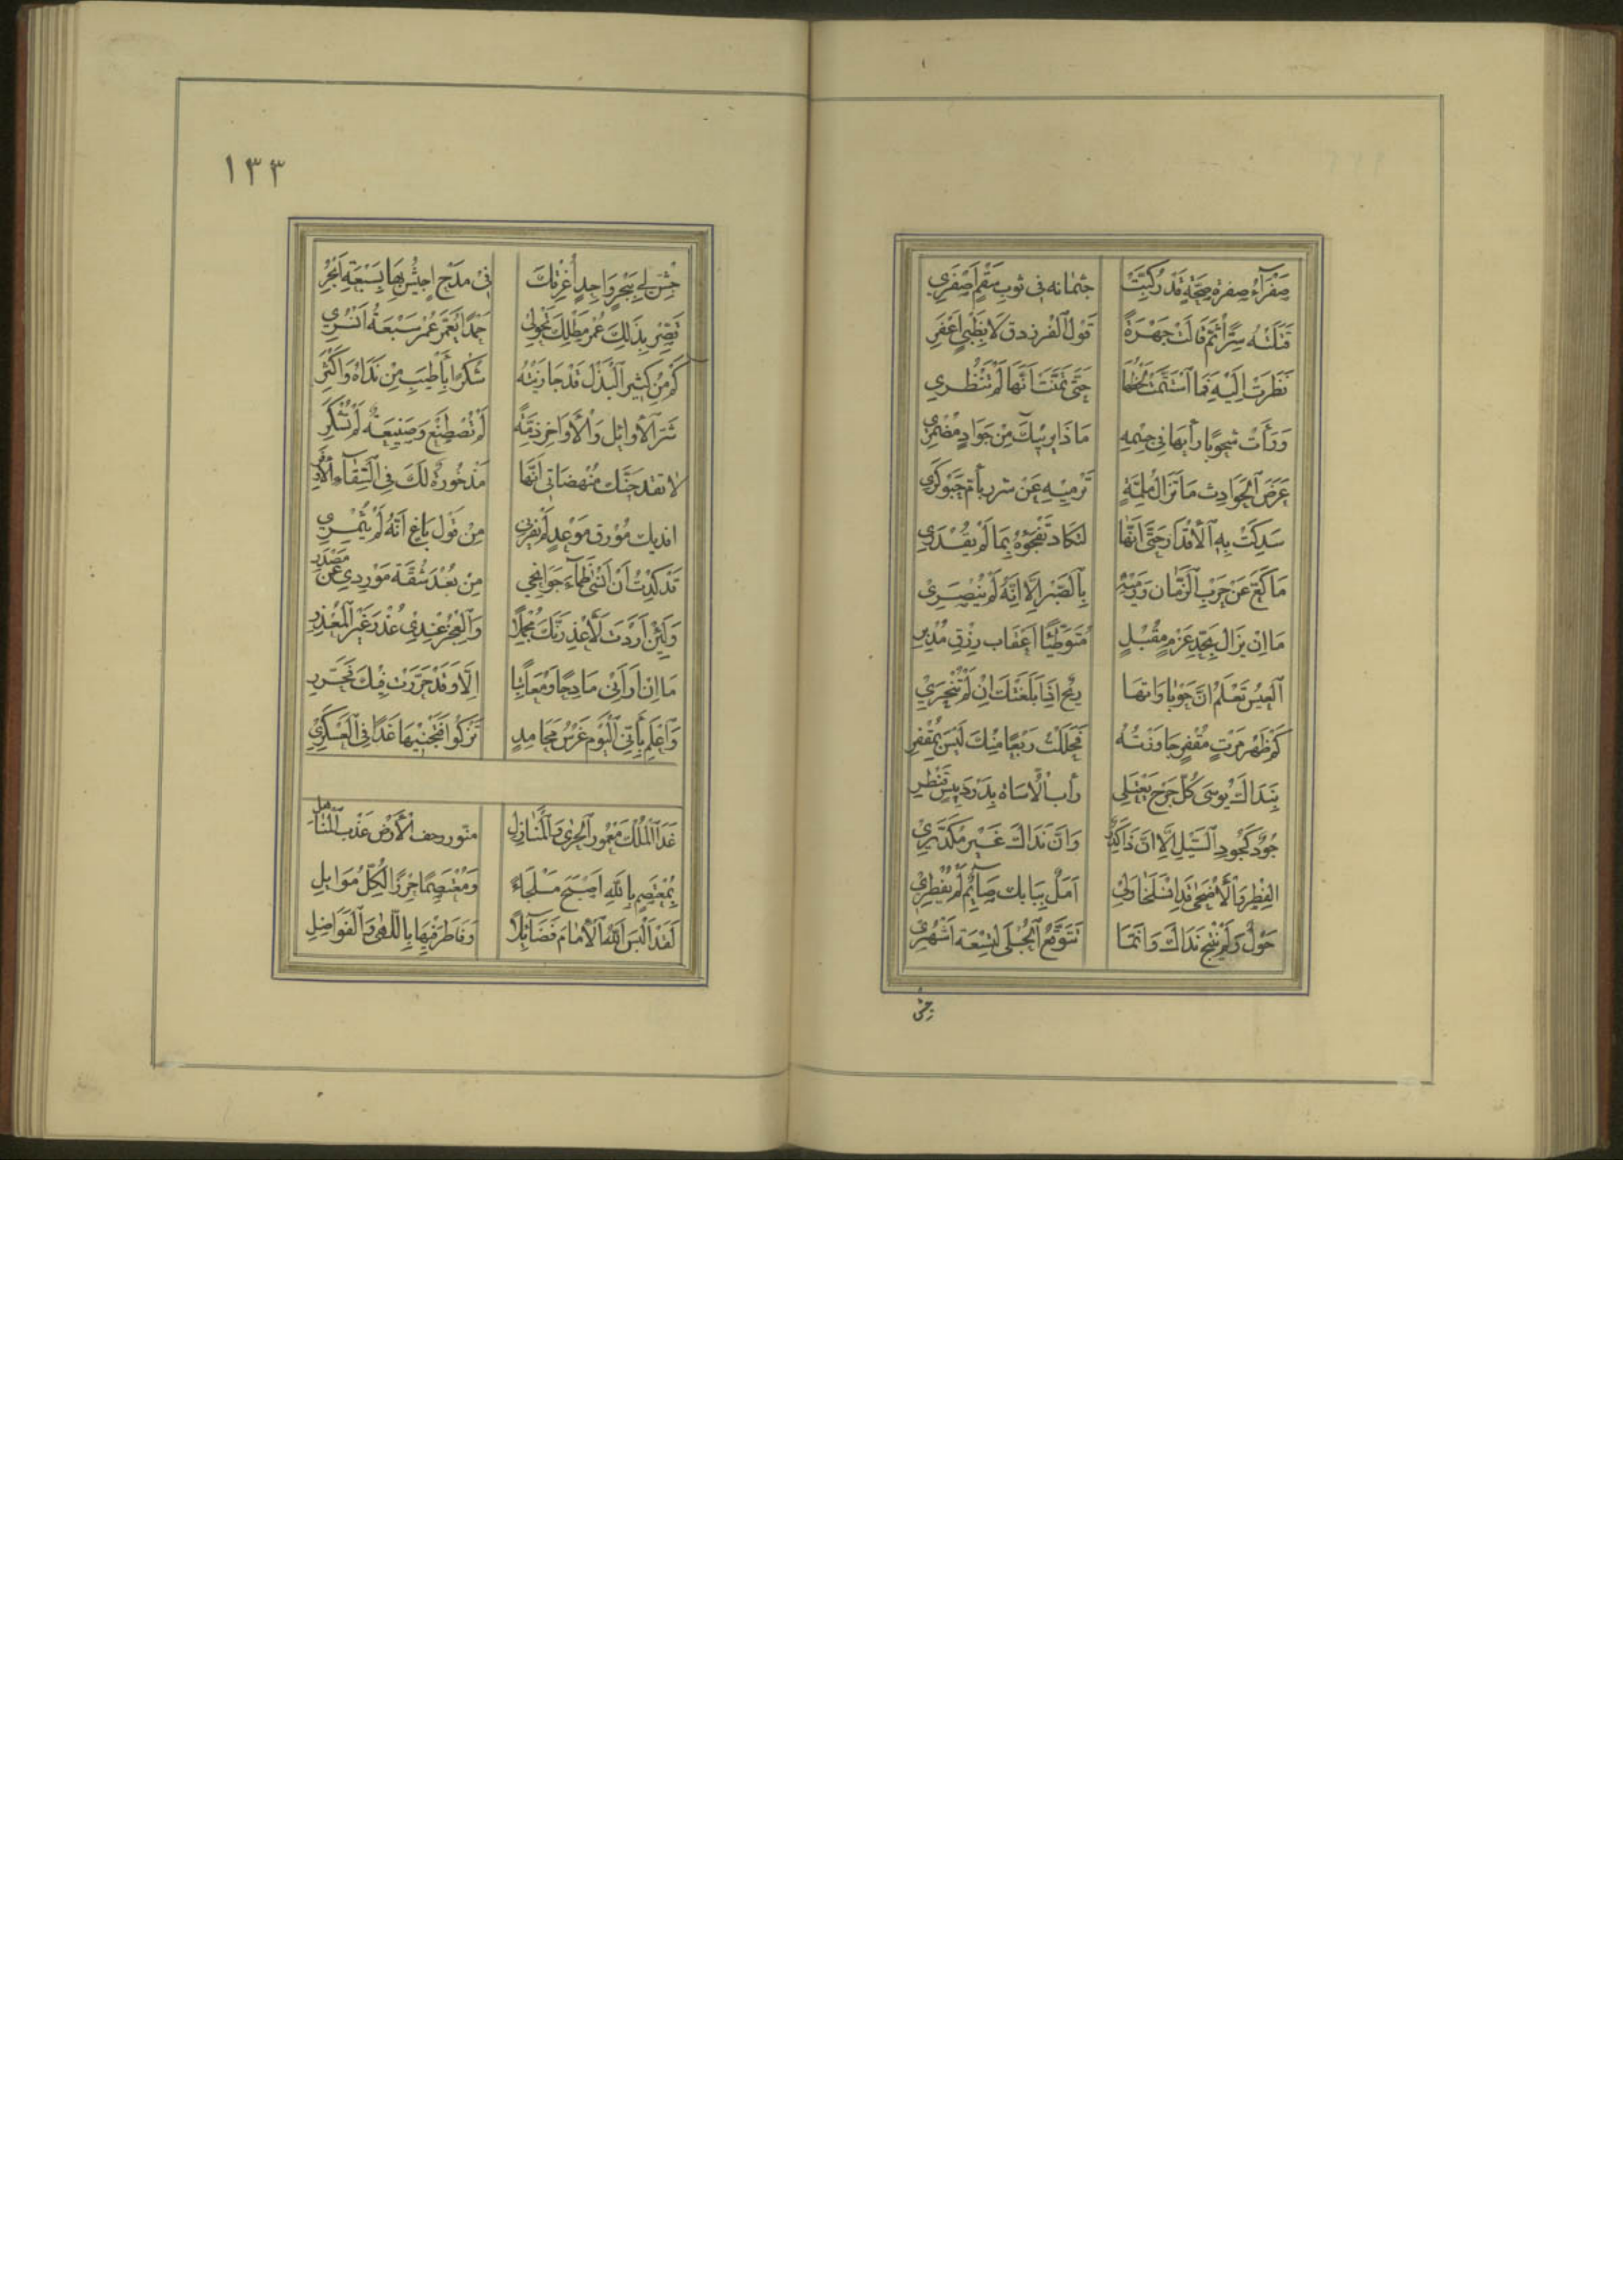 صَفْرَآءُ صِفْرَةَ صِحَّةٍ قَدْ رَكَّبَتْ جثمانه فى ثوبِ سَقْمٍ اَصْفَرِي
قَتَلَتْهُ سِرًّا ثُمَّ قَالَتْ جَهْرَةً قَوْلَ ٱلْفرزدق لَا بِظَبْيٍ اَعْفَرِ
نَظَرَتْ اِلَيْهِ فَمَا ٱسْتَتَمَّتْ لَحْظَهَا حَتّٰى تَمَنَّتْ اَنَّهَا لَمْ تَنْظُرِي
وَرَأَتْ شحوبًا رابها فى جسْمِهِ مَا ذَا يريبكَ مِنْ جَوَادٍ مُضْمَرِي
غَرَضَ ٱلْحَوَادِثِ مَا تَزَالُ مُلِمَّةٍ تَرْمِيْهِ عَنْ شزر بأم حَبَوْكَرِي
سَدِكَتْ بِهِ ٱلْأَقْدَارُ حَتّٰى اَنَّهَا لتكاد تَفْجَؤُهُ بِمَا لَمْ يُقْدَرِي
مَا كَعَّ عَنْ حَرْبِ ٱلزَّمَانِ وَرَمْيِهِ بِٱلصَّبْرِ اِلَّا اِنَّهُ لَمْ يُنْصَرِي
مَا اِنْ يزالُ بِجَدِّ عَزْمٍ مُقْبِلٍ مُتَوَطِّئًا اَعْقَاب رِزْقٍ مُدْبِرِ
ٱلْعِيْسُ تَعْلَمُ اَنَّ حَوْبَاوَاتهَا رِيْحٌ اِذَا بَلَغَتْكَ اِنْ لَمْ تُنْحَرِيْ
كَمْ ظَهْرِ مَرْتٍ مُقْفِرٍ جَاوَزْتُهُ فَحَلَلْتُ رَبْعًا مِنْكَ لَيْسَ بِمُقْفِرِ
بِنَدَاكَ يُوسَى كُلُّ جَرْحٍ يَعْتَلِي رأب ٱلْاُسَاةِ بِدَرْدَبِيْسٍ قَنْطِرِ
جُوْدٌ كَجُوْدِ ٱلسَّيْلِ اِلَّا اَنَّ ذَا كَدِرٌ وَاَنَّ نَدَاكَ غَيْرُ مُكَدَّرِيْ
الفِطْرُ وَٱلْأَضْحَى قَدِ انْسَلَخَا وَلِيْ اَمَلٌ بِبَابِكَ صَآئِمٌ لَمْ يُفْطِرِيْ
حَوْلٌ وَلَمْ يُنْتِجْ نَدَاكَ وَاِنَّمَا تُتَوَقَّعُ ٱلْحُبْلَى لِتِسْعَةِ اَشْهُرِيْ
جش
١٣٣
جِشْ لِي بِبَحْرٍ وَاحِدٍ اُغْرِقْكَ فِيْ مَدْحٍ اَجِيْشُ بِهَا بِسَبْعَةِ اَبْحُرِ
قَصِّرْ بِبَذْلِكَ عُمْرَ مَطْلِكَ تَحْوِلِيْ حَمْدًا يُعَمَّرُ عُمْرَ سَبْعَةِ اَنْسُرِي
كَمْ مِنْ كَثِيْرِ ٱلْبَذْلِ قَدْ جَازَيْتُهُ شُكْرًا بِأَطْيَبِ مِنْ نَدَاهُ وَاَكْثَرِ
شَرُّ الْأَوَائِلِ وَالْأَوَاخِرِ ذِمَّةٌ لَمْ تُصْطَنَعْ وَصَنِيْعَةٌ لَمْ تُشْكَرِ
مِنْ قَوْلِ بَاغٍ اَنَّهُ لَمْ يُثْمِرِيْ
قَدْ كِدْتُ اَنْ اَنْسٰى ظِمَآءَ جَوَانِحِي مِنْ بُعْدِ شُقَّةِ مَوْرِدِي عَنْ مَصْدَرِ
وَلَئِنْ اَرَدْتَ لَأَعْذِرَنَّكَ مُجْمِلًا وَٱلْعَجْزُ عِنْدِيْ عُذْرُ غَيْرِ ٱلْمُعْذِرِ
مَا اِنْ اَرَانِيْ مَادِحًا وَمُعَاتِبًا اِلَّا وَقَدْ حَرَّرْتُ فِيْكَ فَحَرِّرِ
وَٱعْلَمْ بِأَنِّي ٱلْيَوْمَ غَرْسُ مَحَامِدٍ تَزْكُوْا فَتَجْنِيْهَا غَدًا فِي ٱلْعَسْكَرِيْ
غَدَا ٱلْمُلْكُ مَعْمُوْرَ ٱلْحِرَى وَٱلْمَنَازِلِ منوّر وحف ٱلْأَرْضِ عَذْبَ ٱلْمَنَاهِلِ
بِمُعْتَصِمٍ بِاللّٰهِ اَصْبَحَ مَلْجَاءً وَمُعْتَصِمًا حِرْزًا لِكُلِّ مُوَائِلِ
لَقَدْ اَلْبَسَ اللّٰهُ ٱلْأِمَامَ فَضَائِلًا